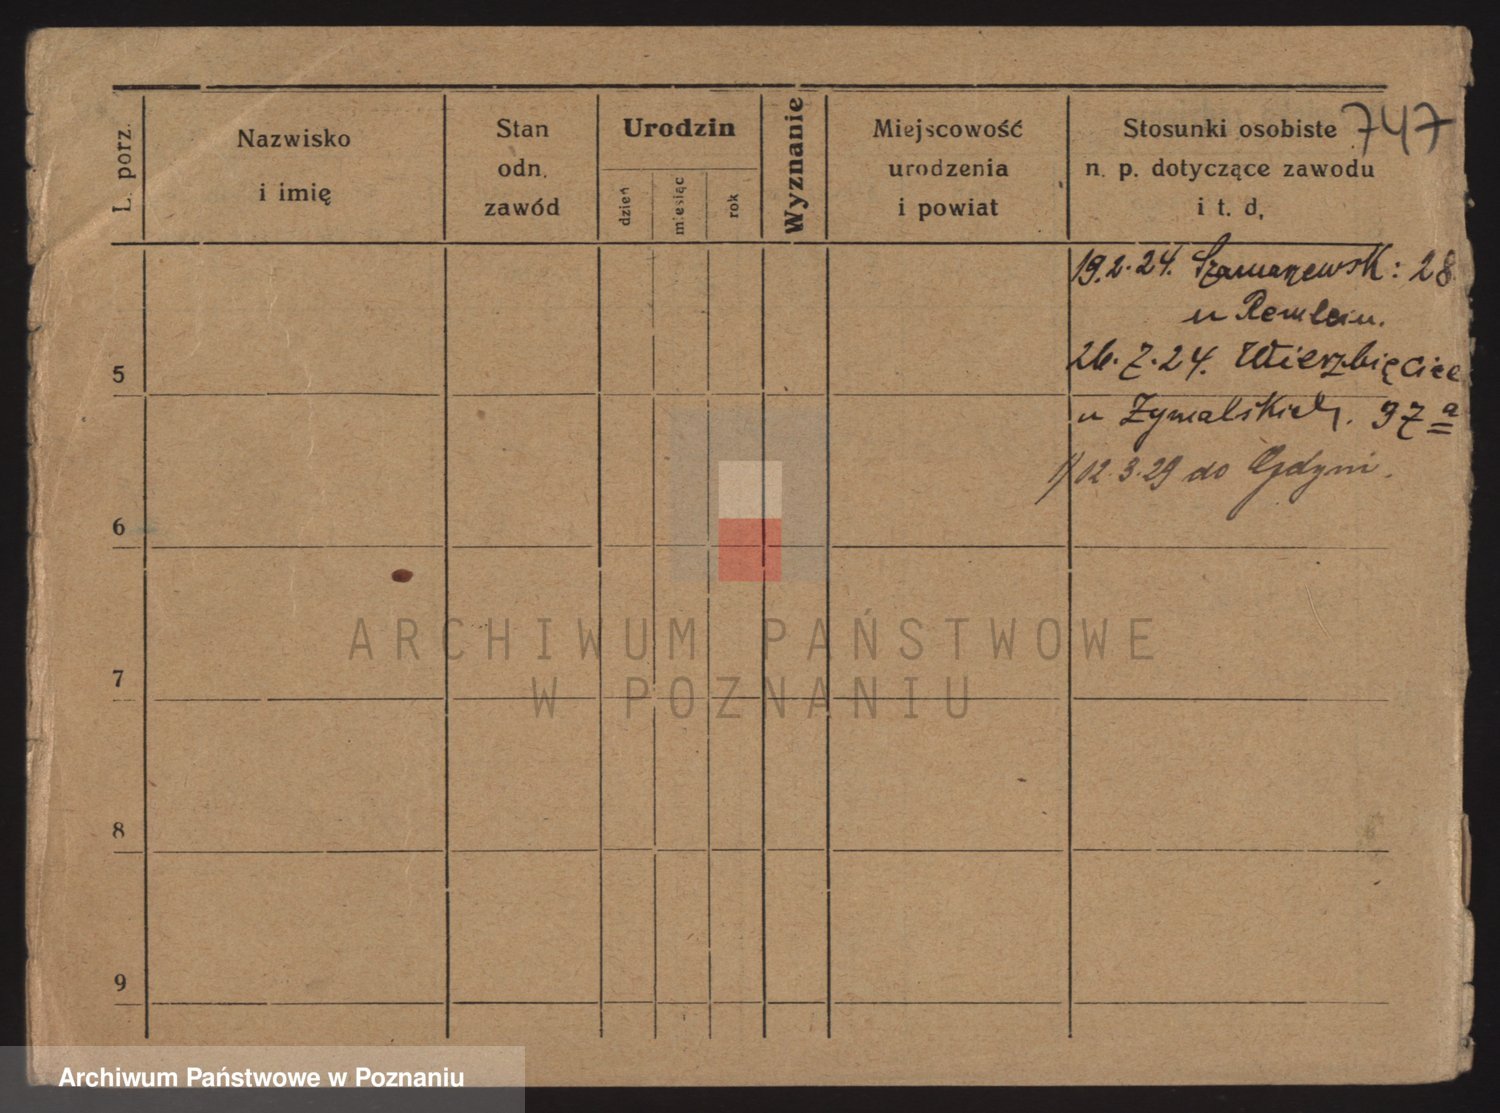 747
L. porz.
Nazwisko
i imię
Stan
odn.
zawód
Urodzin
dzień
miesiąc
rok
Wyznanie
Miejscowość
urodzenia
i powiat
Stosunki osobiste
n. p. dotyczące zawodu
i t. d.
19.2.24. 28
u
26.7.24. Wierzbięcice
u 37 a
5
1) 12.3.29 do Gdyni.
6
7
8
9
ARCHIWUM PAŃSTWOWE
W POZNANIU
Archiwum Państwowe w Poznaniu